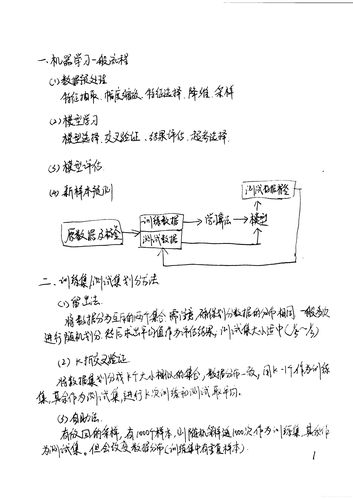 一. 机器学习一般流程
(1) 数据预处理
特征抽取、幅度缩放、特征选择、降维、采样
(2) 模型学习
模型选择、交叉验证、结果评估、超参选择
(3) 模型评估
(4) 新样本预测
测试数据标签
训练数据
学习算法
模型
原数据及标签
测试数据
二. 训练集/测试集划分方法
(1) 留出法
将数据分为互斥的两个集合. 需注意, 确保划分数据的分布相同. 一般多次
进行随机划分. 然后求出平均值作为评估结果, 测试集大小适中
(2) K折交叉验证
将数据集划分成K个大小相似的集合, 数据分布一致, 用K-1个作为训练
集, 其余作为测试集, 进行K次训练和测试取平均.
(3) 自助法
有放回的采样, 有1000个样本, 则随机采样这1000次作为训练集, 其余作
为测试集. 但会改变数据分布(训练集中有重复样本)
1